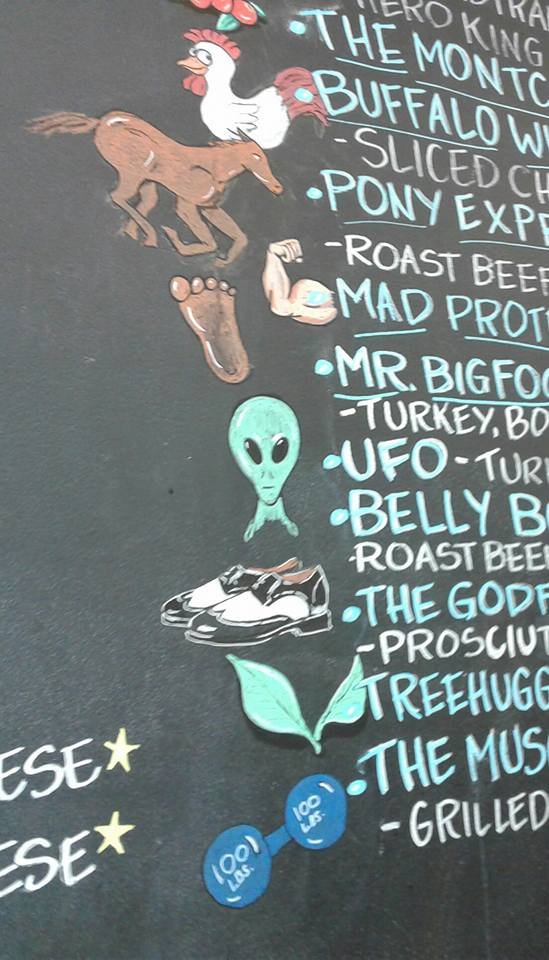 HERO KING
THE MONTC
BUFFALO W
-SLICED CH
PONY EXP
-ROAST BEEF
MAD PROT
MR. BIGFOO
-TURKEY, BO
UFO - TUR
BELLY B
-ROAST BEE
THE GODF
-PROSCIUT
TREEHUGG
THE MUS
-GRILLED
ESE
ESE
100 LBS.
100 LBS.